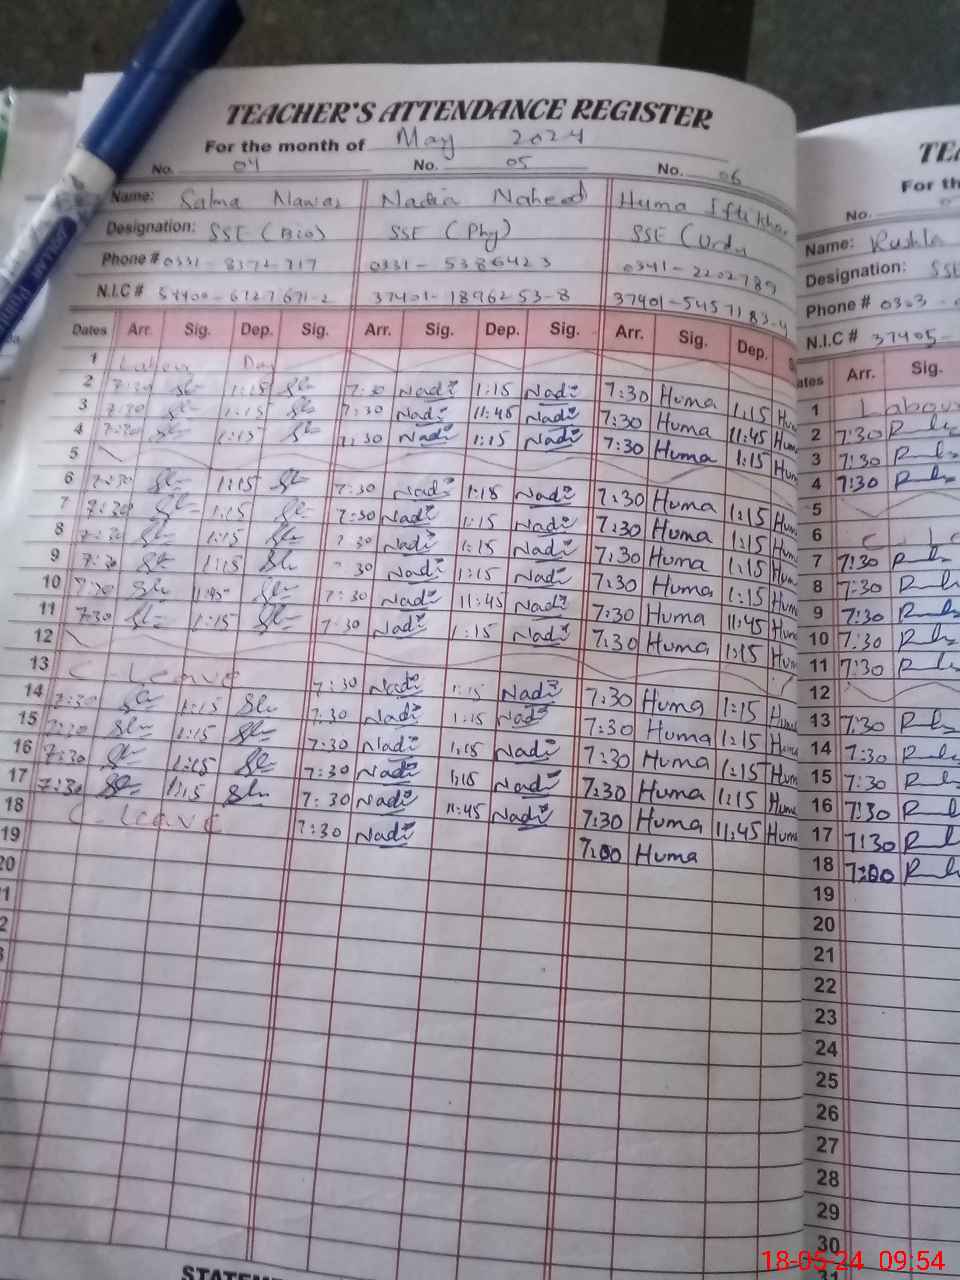 TEACHER'S ATTENDANCE REGISTER
For the month of May 2024
No. 04 No. 05 No. 06
Name: Salma Nawaz Nadia Naheed Huma Iftikhar
Designation: SSE (Bio) SSE (Phy) SSE (Urdu
Phone # 0331-8372717 0331-5386423 0341-2202789
N.I.C # 37401-1896253-8 37401-5457183-4
Dates Arr. Sig. Dep. Sig. Arr. Sig. Dep. Sig. Arr. Sig. Dep.
1 Labour Day
2 7:30 1:15 7:30 Nadi 1:15 Nadi 7:30 Huma 1:15 Hum
3 7:30 1:15 7:30 Nadi 11:45 Nadi 7:30 Huma 11:45 Hum
4 7:30 1:15 7:30 Nadi 1:15 Nadi 7:30 Huma 1:15 Hum
5
6 7:30 1:15 7:30 Nadi 1:15 Nadi 7:30 Huma 1:15 Hum
7 7:30 1:15 7:30 Nadi 1:15 Nadi 7:30 Huma 1:15 Hum
8 7:30 1:15 :30 Nadi 1:15 Nadi 7:30 Huma 1:15 Hum
9 7:30 1:15 :30 Nadi 1:15 Nadi 7:30 Huma 1:15 Hum
10 7:30 11:45 7:30 Nadi 11:45 Nadi 7:30 Huma 11:45 Hum
11 7:30 1:15 7:30 Nadi 1:15 Nadi 7:30 Huma 1:15 Hum
12
13 C-Leave 7:30 Nadi 1:15 Nadi 7:30 Huma 1:15 Huma
14 7:30 1:15 7:30 Nadi 1:15 Nadi 7:30 Huma 1:15 Huma
15 7:30 1:15 7:30 Nadi 1:15 Nadi 7:30 Huma 1:15 Hum
16 7:30 1:15 7:30 Nadi 1:15 Nadi 7:30 Huma 1:15 Hum
17 7:30 1:15 7:30 Nadi 11:45 Nadi 7:30 Huma 11:45 Hum
18 C-Leave 7:30 Nadi 7:00 Huma
19
20
21
2
3
TEA
For th
No.
Name: Rushla
Designation: SSE
Phone # 0303-
N.I.C # 37405-
ates Arr. Sig.
1 Labour
2 7:30
3 7:30
4 7:30
5
6 C-Le
7 7:30
8 7:30
9 7:30
10 7:30
11 7:30
12
13 7:30
14 7:30
15 7:30
16 7:30
17 7:30
18 7:00
19
20
21
22
23
24
25
26
27
28
29
30
31
STATEM
18-05-24 09:54